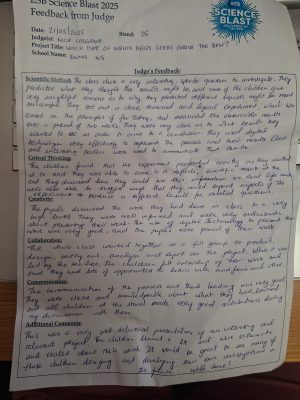 ESB Science Blast 2025
Feedback from Judge
ESB
SCIENCE
BLAST
Date: 21/05/2025 Stand: 35
Judge(s): NICK
Project Title: WHICH TYPE OF LIQUID HELPS SEEDS GROW THE BEST?
School Name: NS
Judge's Feedback:
Scientific Method: The class chose a very interesting, specific question to investigate. They
predicted what they thought the results might be, and some of the children gave
very insightful reasons as to why they predicted different liquids might be most
successful. They set out a clear, and logical experiment, which was
based on the principles of fair testing, and measured the observable results
over a period of two weeks. They were very clear on what results they
wanted to see in order to come to a conclusion. They used digital
technology very effectively to represent the process and their results. Clear
and interesting posters were used to communicate their results.
Critical Thinking:
The children found that the experiment proceeded exactly as they wanted
it to and they were able to come to a definite, scientific result in the
end. They discussed how they could use this information in real life and
were able to suggest ways that they could expand aspects of the
experiment to produce a different should be related questions.
Creativity:
The pupils discussed the work they had done in class to a very
high level. They were well informed and were very enthusiastic
about presenting their work. The use of digital technology to present the
work was very good and the pupils were proud of their work.
Collaboration:
The whole class worked together as a full group to predict,
design, carry out, analyse and report on the project. While it was
led by the teacher, the children had ownership of their work and
said they had lots of opportunities to learn with and from each other.
Communication:
The communication of the process and their learning was very good.
They were clear and knowledgeable about what they had learned
and all children at the stand made very good contributions during
my discussion with them.
Additional Comments:
This was a very well delivered presentation of an interesting and
relevant project. The children learned a lot and were enthusiastic
and excited about their work. It would be great to see many of
these children designing and developing their own investigations in
the future. Well done!